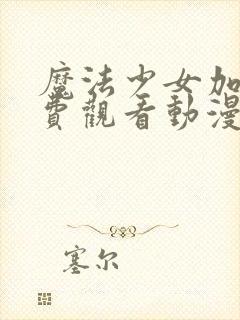 魔法少女加
費觀看動漫
塞尔